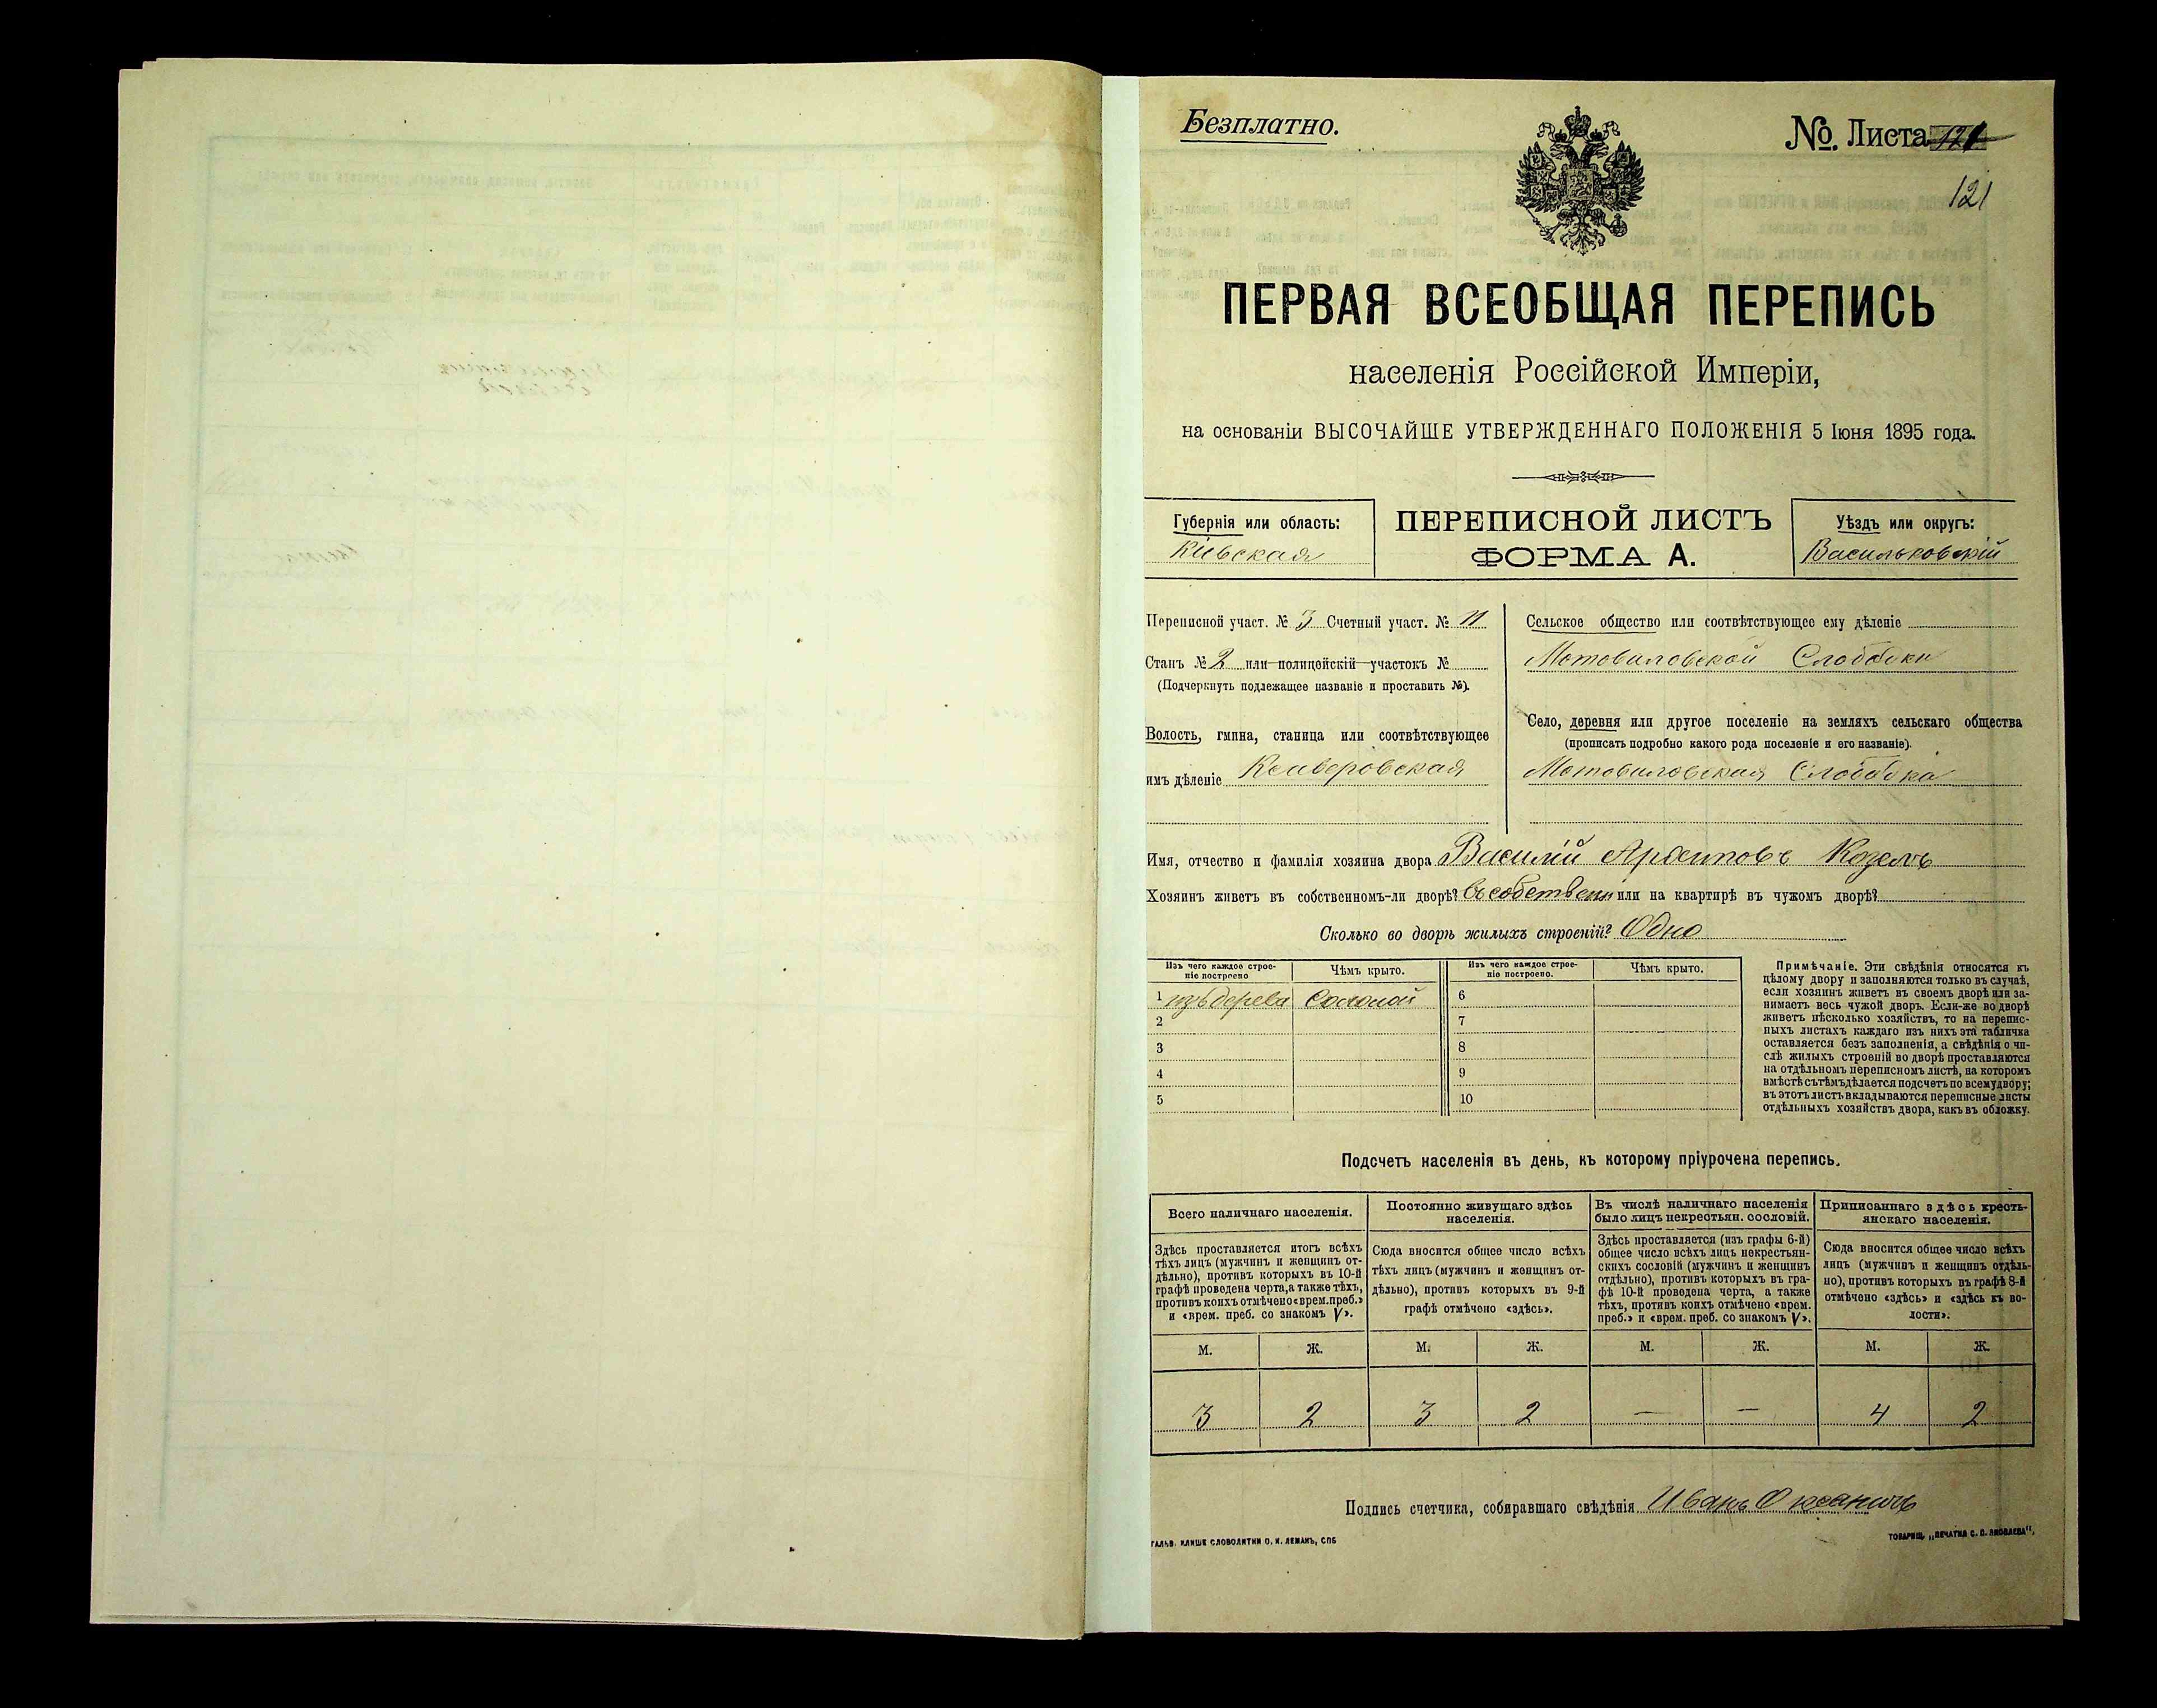 Безплатно.
№. Листа 121
121
ПЕРВАЯ ВСЕОБЩАЯ ПЕРЕПИСЬ
населенія Россійской Имперіи,
на основаніи ВЫСОЧАЙШЕ УТВЕРЖДЕННАГО ПОЛОЖЕНІЯ 5 Іюня 1895 года.
Губернія или область:
Кіевская
ПЕРЕПИСНОЙ ЛИСТЪ
ФОРМА А.
Уѣздъ или округъ:
Васильковскій
Переписной участ. № 3 Счетный участ. № 11
Станъ № 2 или полицейскій участокъ №
(Подчеркнуть подлежащее названіе и проставить №).
Волость, гмина, станица или соотвѣтствующее
имъ дѣленіе
Сельское общество или соотвѣтствующее ему дѣленіе
Мотовиловской Слободки
Село, деревня или другое поселеніе на земляхъ сельскаго общества
(прописать подробно какого рода поселеніе и его названіе).
Мотовиловская Слободка
Имя, отчество и фамилія хозяина двора Василій Архиповъ Козелъ
Хозяинъ живетъ въ собственномъ-ли дворѣ? въ собственн или на квартирѣ въ чужомъ дворѣ?
Сколько во дворѣ жилыхъ строеній? Одно
Изъ чего каждое строе-
ніе построено
Чѣмъ крыто.
Изъ чего каждое строе-
ніе построено.
Чѣмъ крыто.
1 изъ дерева Соломой
2
3
4
5
6
7
8
9
10
Примѣчаніе. Эти свѣдѣнія относятся къ
цѣлому двору и заполняются только въ случаѣ,
если хозяинъ живетъ въ своемъ дворѣ или за-
нимаетъ весь чужой дворъ. Если-же во дворѣ
живетъ нѣсколько хозяйствъ, то на перепис-
ныхъ листахъ каждаго изъ нихъ эта табличка
оставляется безъ заполненія, а свѣдѣнія о чи-
слѣ жилыхъ строеній во дворѣ проставляются
на отдѣльномъ переписномъ листѣ, на которомъ
вмѣстѣ съ тѣмъ дѣлается подсчетъ по всему двору;
въ этотъ листъ вкладываются переписные листы
отдѣльныхъ хозяйствъ двора, какъ въ обложку.
Подсчетъ населенія въ день, къ которому пріурочена перепись.
Всего наличнаго населенія.
Здѣсь проставляется итогъ всѣхъ
тѣхъ лицъ (мужчинъ и женщинъ от-
дѣльно), противъ которыхъ въ 10-й
графѣ проведена черта, а также тѣхъ,
противъ коихъ отмѣчено «врем. преб.»
и «врем. преб. со знакомъ V».
Постоянно живущаго здѣсь
населенія.
Сюда вносится общее число всѣхъ
тѣхъ лицъ (мужчинъ и женщинъ от-
дѣльно), противъ которыхъ въ 9-й
графѣ отмѣчено «здѣсь».
Въ числѣ наличнаго населенія
было лицъ некрестьян. сословій.
Здѣсь проставляется (изъ графы 6-й)
общее число всѣхъ лицъ некрестьян-
скихъ сословій (мужчинъ и женщинъ
отдѣльно), противъ которыхъ въ гра-
фѣ 10-й проведена черта, а также
тѣхъ, противъ коихъ отмѣчено «врем.
преб.» и «врем. преб. со знакомъ V».
Приписаннаго здѣсь кресть-
янскаго населенія.
Сюда вносится общее число всѣхъ
лицъ (мужчинъ и женщинъ отдѣль-
но), противъ которыхъ въ графѣ 8-й
отмѣчено «здѣсь» и «здѣсь къ во-
лости».
М. Ж. М. Ж. М. Ж. М. Ж.
3 2 3 2 — — 4 2
Подпись счетчика, собиравшаго свѣдѣнія Иванъ
ГАЛЬВ. КЛИШЕ СЛОВОЛИТНИ О. И. ЛЕМАНЪ, СПБ
ТОВАРИЩ. „ПЕЧАТНЯ С. П. ЯКОВЛЕВА“.